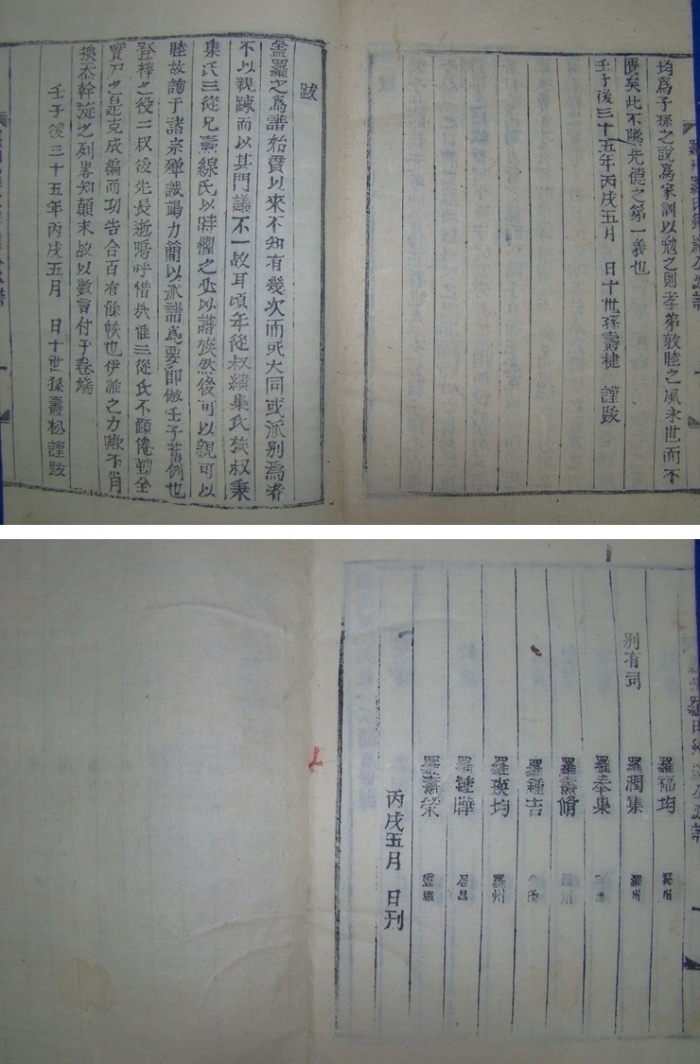 均爲子孫之說爲家訓以勉之則孝弟敦睦之風永世而不
匱矣此不墜先德之第一義也
壬子後三十五年丙戌五月 日十世孫壽 謹跋
跋
羅之爲譜始營以來不知有幾次而或大同或派別焉者
不以親踈而以其門議不一故耳頃年從叔纘集氏族叔秉
集氏三從兄壽線氏以時懼之必以譜族然後可以親可以
睦故詢于諸宗殫誠竭力簡以派譜爲要卽倣壬子舊例也
登梓之役二叔後先長逝嗚呼惜哉惟三從氏不顧倦勤全
實尸之是克成編而功告合百有餘帙也伊誰之力歟不肖
忝幹旋之列畧知顚末故以數言付于卷端
壬子後三十五年丙戌五月 日十世孫壽松謹跋
羅福均
別有司 羅潤集 羅州
羅奉集
羅壽脩
羅鍾吉
羅瑛均 羅州
羅鍾曄 居昌
羅壽榮 靈巖
丙戌五月 日刊